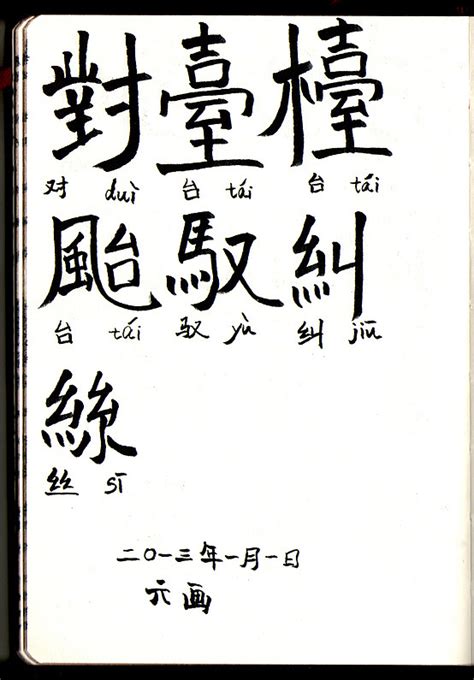 對 臺 檯
对 duì 台 tái 台 tái
颱 馭 糾
台 tái 驭 yù 纠 jiū
絲
丝 sī
二〇一三年一月一日
六画